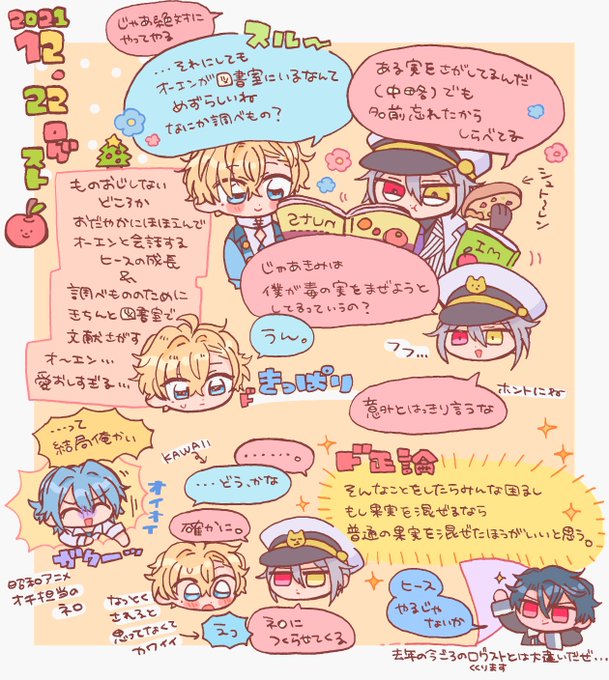 2021
12.22ログスト
じゃあ絶対に
やってやる
スルー
…それにしても
オーエンが図書室にいるなんて
めずらしいね
なにか調べもの?
ある実をさがしてるんだ
(中略)でも
名前忘れたから
しらべてる
シュトーレン
ものおじしない
どころか
おだやかにほほえんで
オーエンと会話する
ヒースの成長
&
調べもののために
きちんと図書室で
文献さがす
オーエン…
愛おしすぎる…
じゃあきみは
僕が毒の実をまぜようと
してるっていうの?
うん。
ドきっぱり
フフ…
ホントにね
意外とはっきり言うな
…って
結局俺かい
オイオイ
ガクーッ
昭和アニメ
オチ担当の
ネロ
KAWAII
……。
…どう、かな
確かに。
なっとく
されると
思ってなくて
カワイイ
えっ
ネロに
つくらせてくる
ド正論
そんなことをしたらみんな困るし
もし果実を混ぜるなら
普通の果実を混ぜたほうがいいと思う。
ヒース
やるじゃ
ないか
去年の今ごろのログストとは大違いだぜ…
くくります